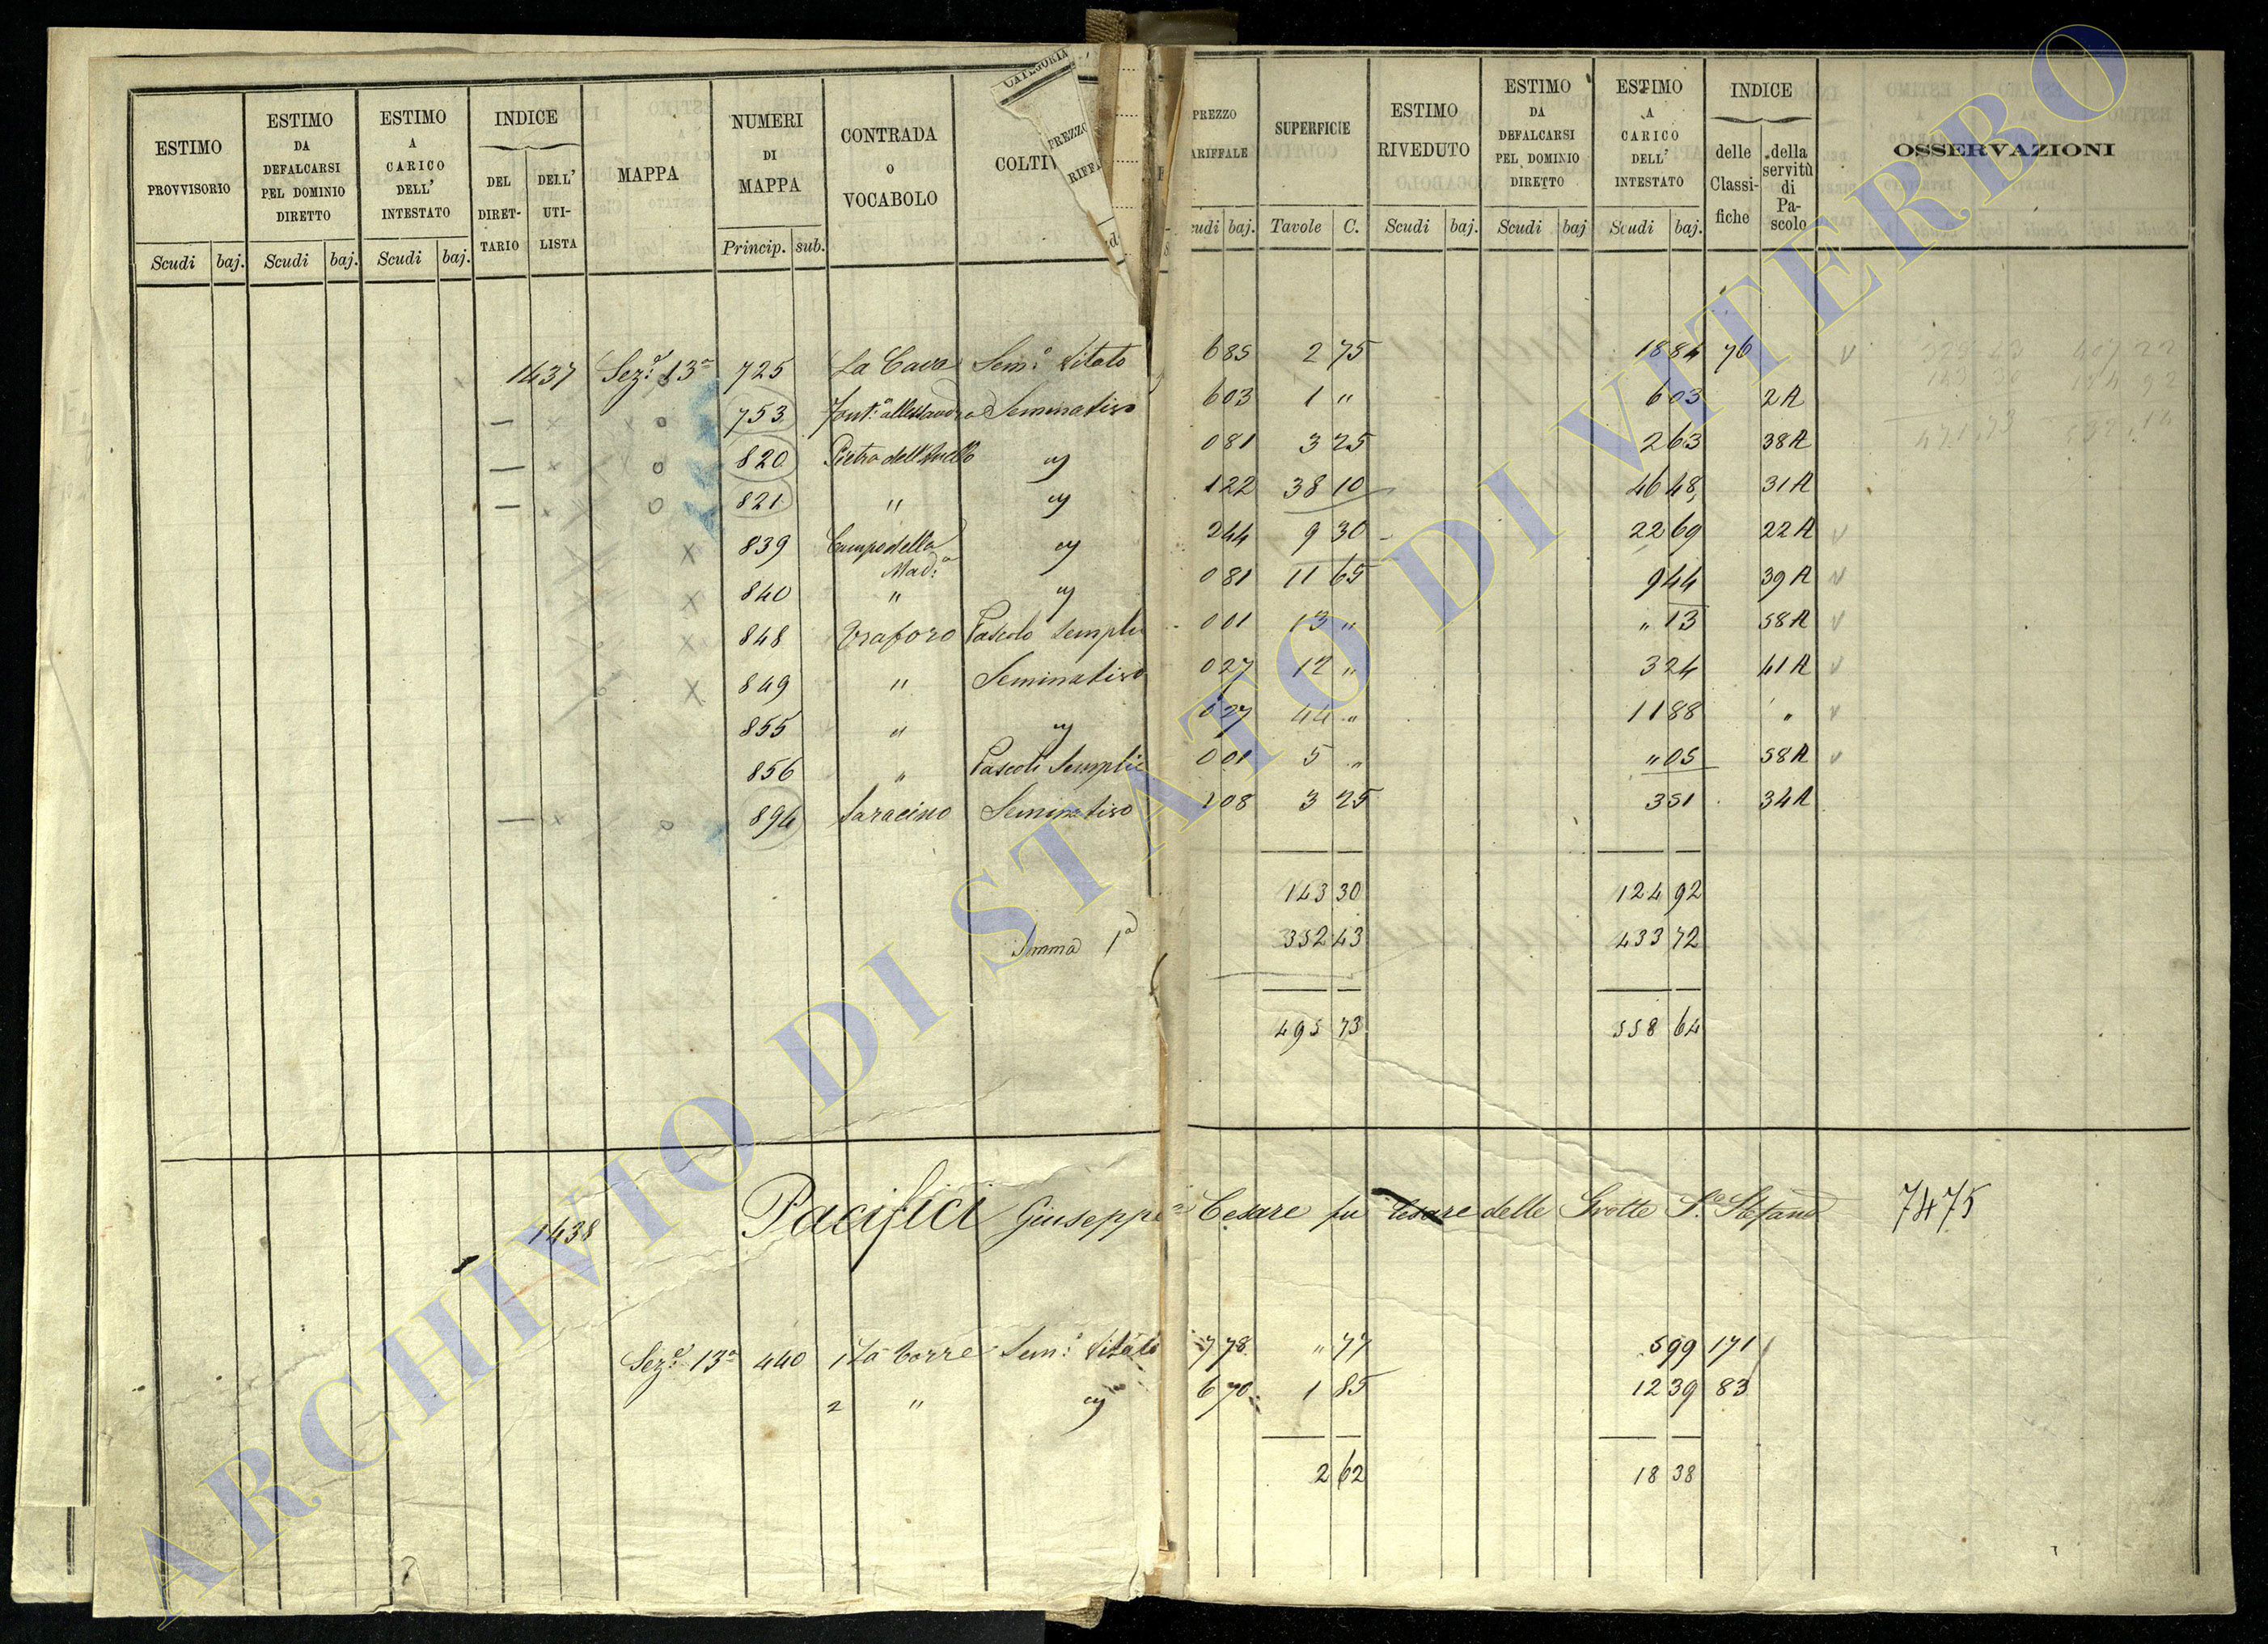 ESTIMO PROVVISORIO | ESTIMO DA DEFALCARSI PEL DOMINIO DIRETTO | ESTIMO A CARICO DELL' INTESTATO | INDICE DEL DIRETTARIO | DELL' UTILISTA | MAPPA | NUMERI DI MAPPA | CONTRADA o VOCABOLO | COLTIV | CATEGORIA | PREZZO | RIFFA | PREZZO ARIFFALE | SUPERFICIE | ESTIMO RIVEDUTO | ESTIMO DA DEFALCARSI PEL DOMINIO DIRETTO | ESTIMO A CARICO DELL' INTESTATO | INDICE delle Classifiche | della servitù di Pascolo | OSSERVAZIONI
Scudi | baj. | Scudi | baj. | Scudi | baj. | Princip. | sub. | cudi | baj. | Tavole | C. | Scudi | baj. | Scudi | baj | Scudi | baj.
1437 Sez.e 13a 725 La Cava Sem.o Vitato 6 85 2 75 18 84 76
753 Font.e allessandro Seminativo 6 03 1 " 6 03 2A
820 Pietra dell'Anello " 0 81 3 25 2 63 38A
821 " " 1 22 38 10 46 48 31A
839 Campo della Mad.a " 2 44 9 30 22 69 22A
840 " " 0 81 11 65 9 44 39A
848 Traforo Pascolo Semplice 0 01 13 " " 13 58A
849 " Seminativo 0 27 12 " 3 24 41A
855 " " 0 27 44 " 11 88 "
856 " Pascolo Semplice 0 01 5 " " 05 58A
894 Saracino Seminativo 1 08 3 25 3 51 34A
143 30 124 92
Somma 1a 352 43 433 72
495 73 558 64
1438 Pacifici Giuseppe e Cesare fu Cesare delle Grotte S.o Stefano 7475
Sez.e 13a 440 1 La Torre Sem.o Vitato 7 78 " 77 5 99 171
2 " " 6 70 1 85 12 39 83
2 62 18 38
ARCHIVIO DI STATO DI VITERBO